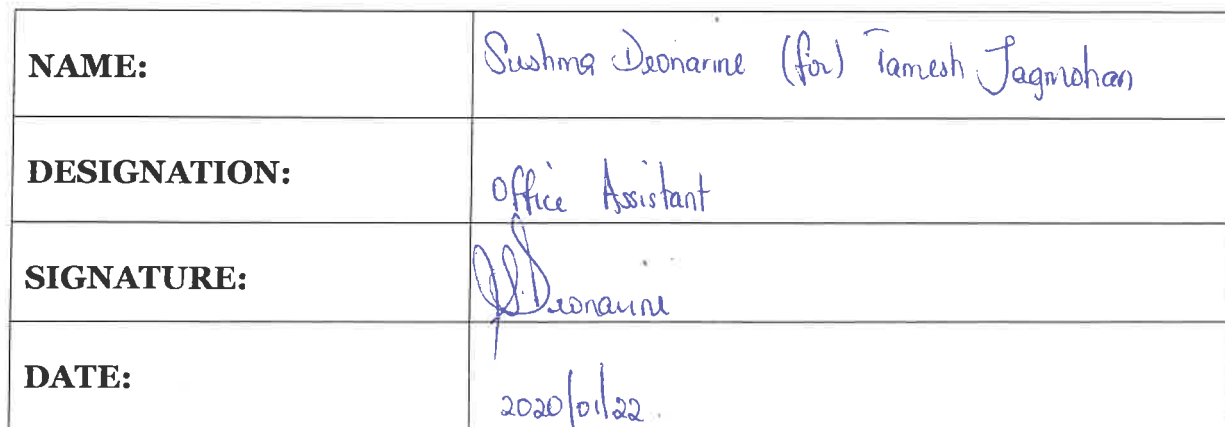 NAME: Sushma Deonarine (for) Tamesh Jagmohan
DESIGNATION: Office Assistant
SIGNATURE: S. Deonarine
DATE: 2020/01/22